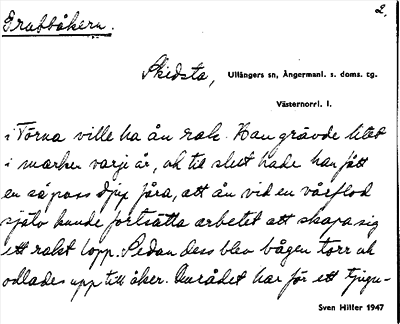 2.
Grabbåkern.
Skidsta, Ullångers sn, Ångermanl. s. doms. tg.
Västernorrl. l.
i Törna ville ha ån rak. Han grävde litet
i marken varje år, och til slut hade han fått
en så pass djup fåra, att ån vid en vårflod
själv kunde fortsätta arbetet att skapa sig
ett rakt lopp. Sedan dess blev bågen torr och
odlades upp till åker. Området har för ett tjugu-
Sven Hiller 1947